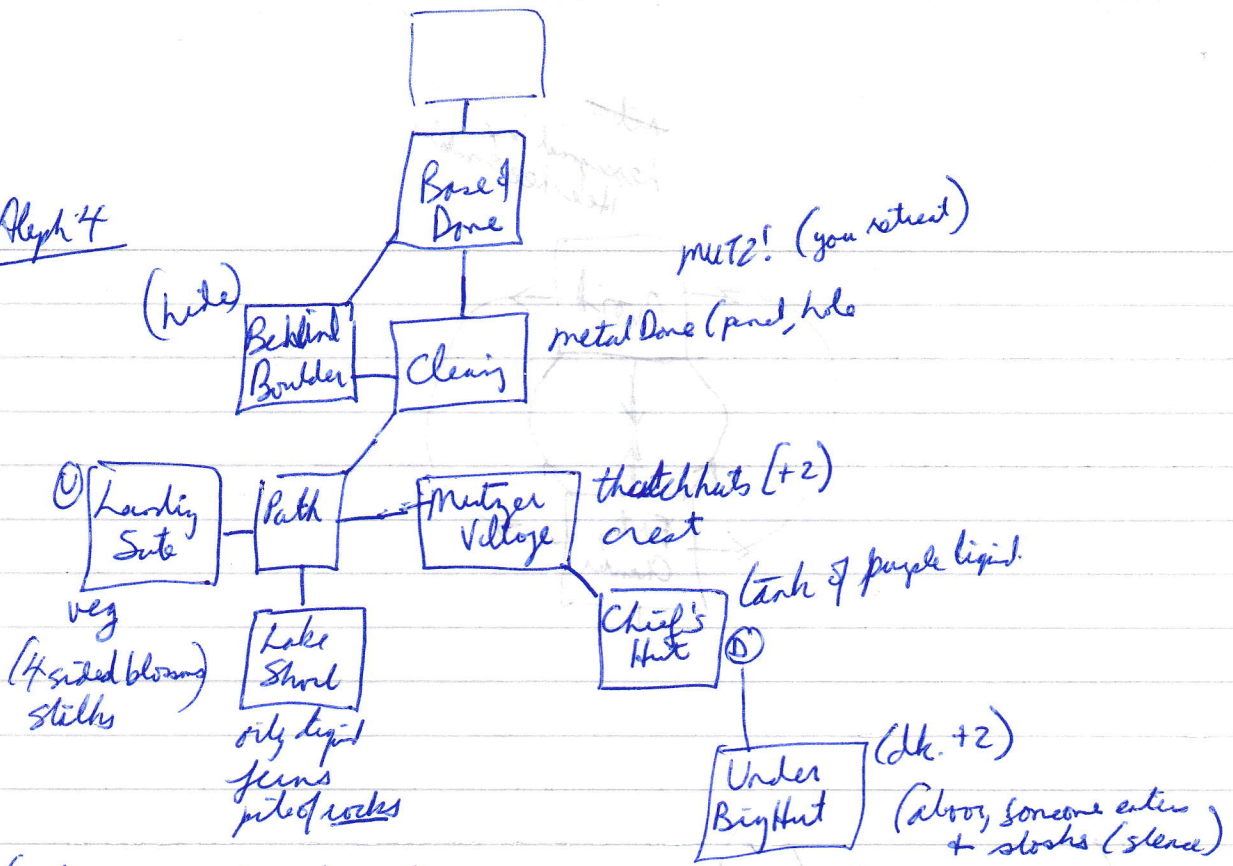 Aleph 4
Base of
Dome
MUTZ! (you retreat)
(hide)
Behind
Boulder
Clearing
metal Dome (panel, hole
U
Landing
Site
Path
Mutzer
Village
thatch huts (+2)
crest
veg
(4 sided blossoms)
stalks
Lake
Shore
oily liquid
ferns
pile of rocks
Chief's
Hut
(tank of purple liquid
D
Under
Big Hut
(dk. +2)
(above, someone enters
+ sloshs (silence)